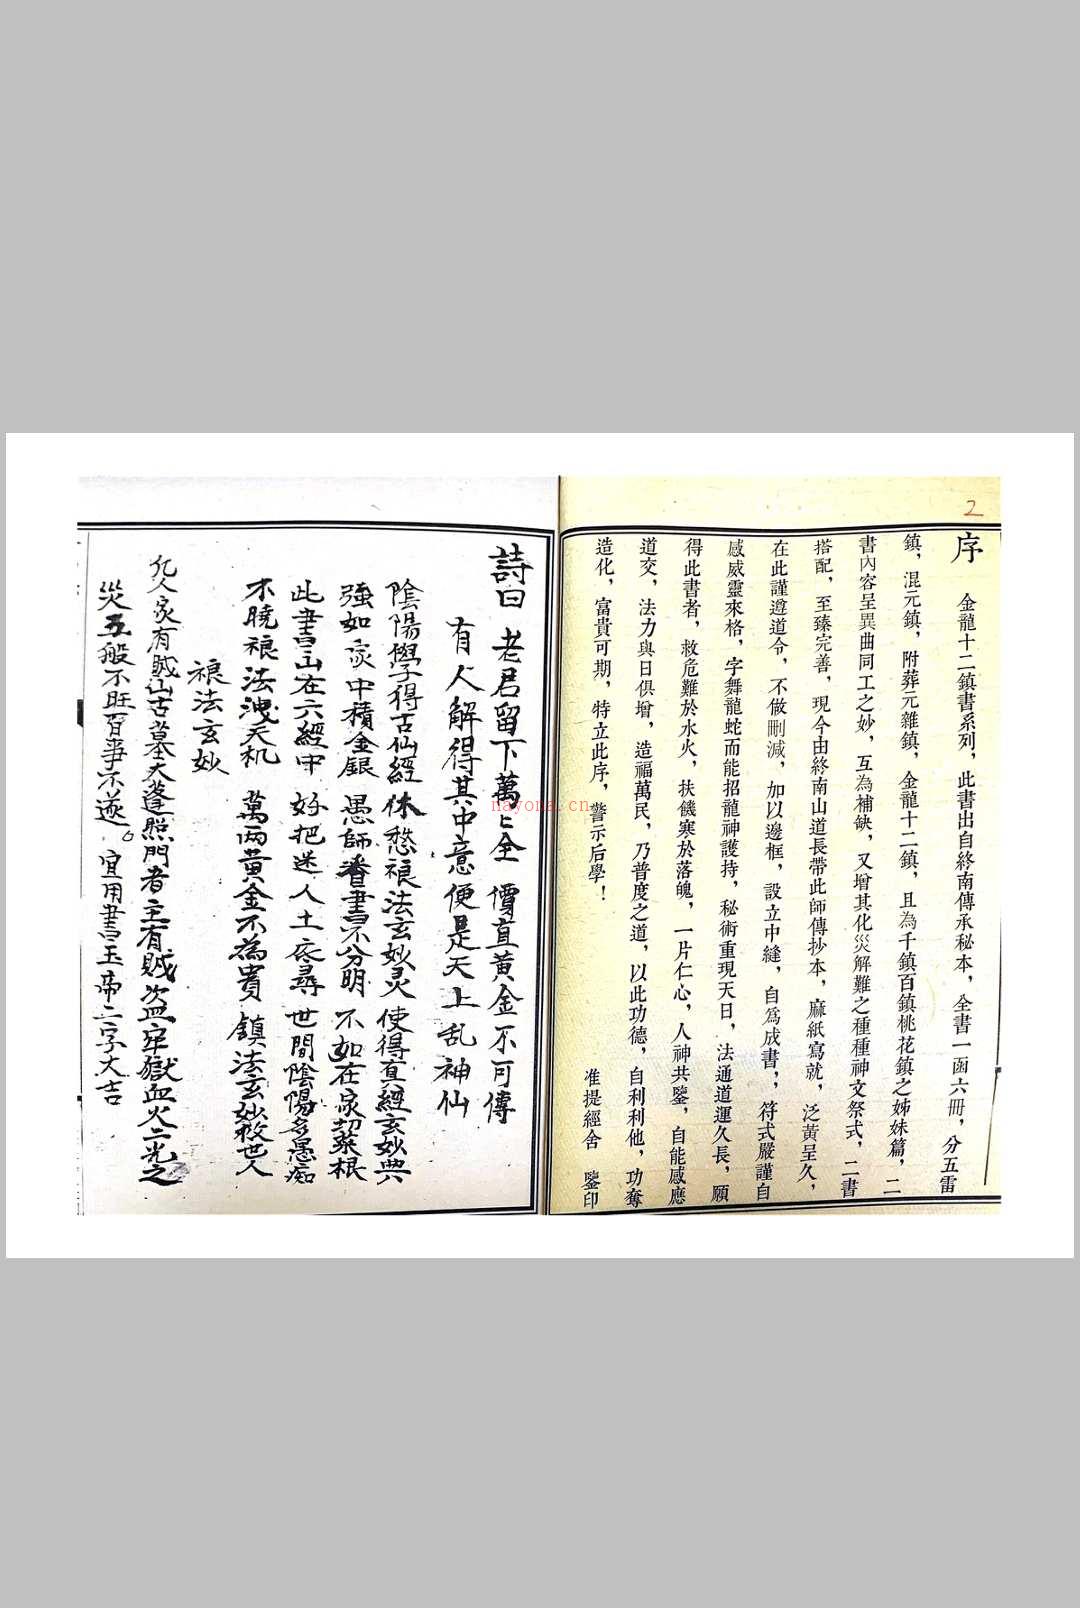 2
序
金龍十二鎮書系列，此書出自終南傳承秘本，全書一函六冊，分五雷
鎮，混元鎮，附葬元雜鎮，金龍十二鎮，且為千鎮百鎮桃花鎮之姊妹篇，二
書內容呈異曲同工之妙，互為補缺，又增其化災解難之種種神文祭式，二書
搭配，至臻完善，現今由終南山道長帶此師傳抄本，麻紙寫就，泛黃呈久，
在此謹遵道令，不做刪減，加以邊框，設立中縫，自為成書，，符式嚴謹自
感威靈來格，字舞龍蛇而能招龍神護持，秘術重現天日，法通道運久長，願
得此書者，救危難於水火，扶饑寒於落魄，一片仁心，人神共鑒，自能感應
道交，法力與日俱增，造福萬民，乃普度之道，以此功德，自利利他，功奪
造化，富貴可期，特立此序，警示后學！
准提經舍 鑒印
詩曰 老君留下萬上全 價直黃金不可傳
有人解得其中意便是天上乱神仙
陰陽學得古仙經 休愁禳法玄妙灵 使得真經玄妙典
強如家中積金銀 愚師看書不分明 不如在家契菜根
此書出在六經中 好把迷人土底尋 世間陰陽多愚痴
不曉禳法洩天机 萬兩黃金不為貴 鎮法玄妙救世人
禳法玄妙
凢人家有賊山古墓天蓬照門者主有賊盗牢獄血火二光之
災五般不旺百事不遂。宜用書玉帝二字大吉
nayona.cn